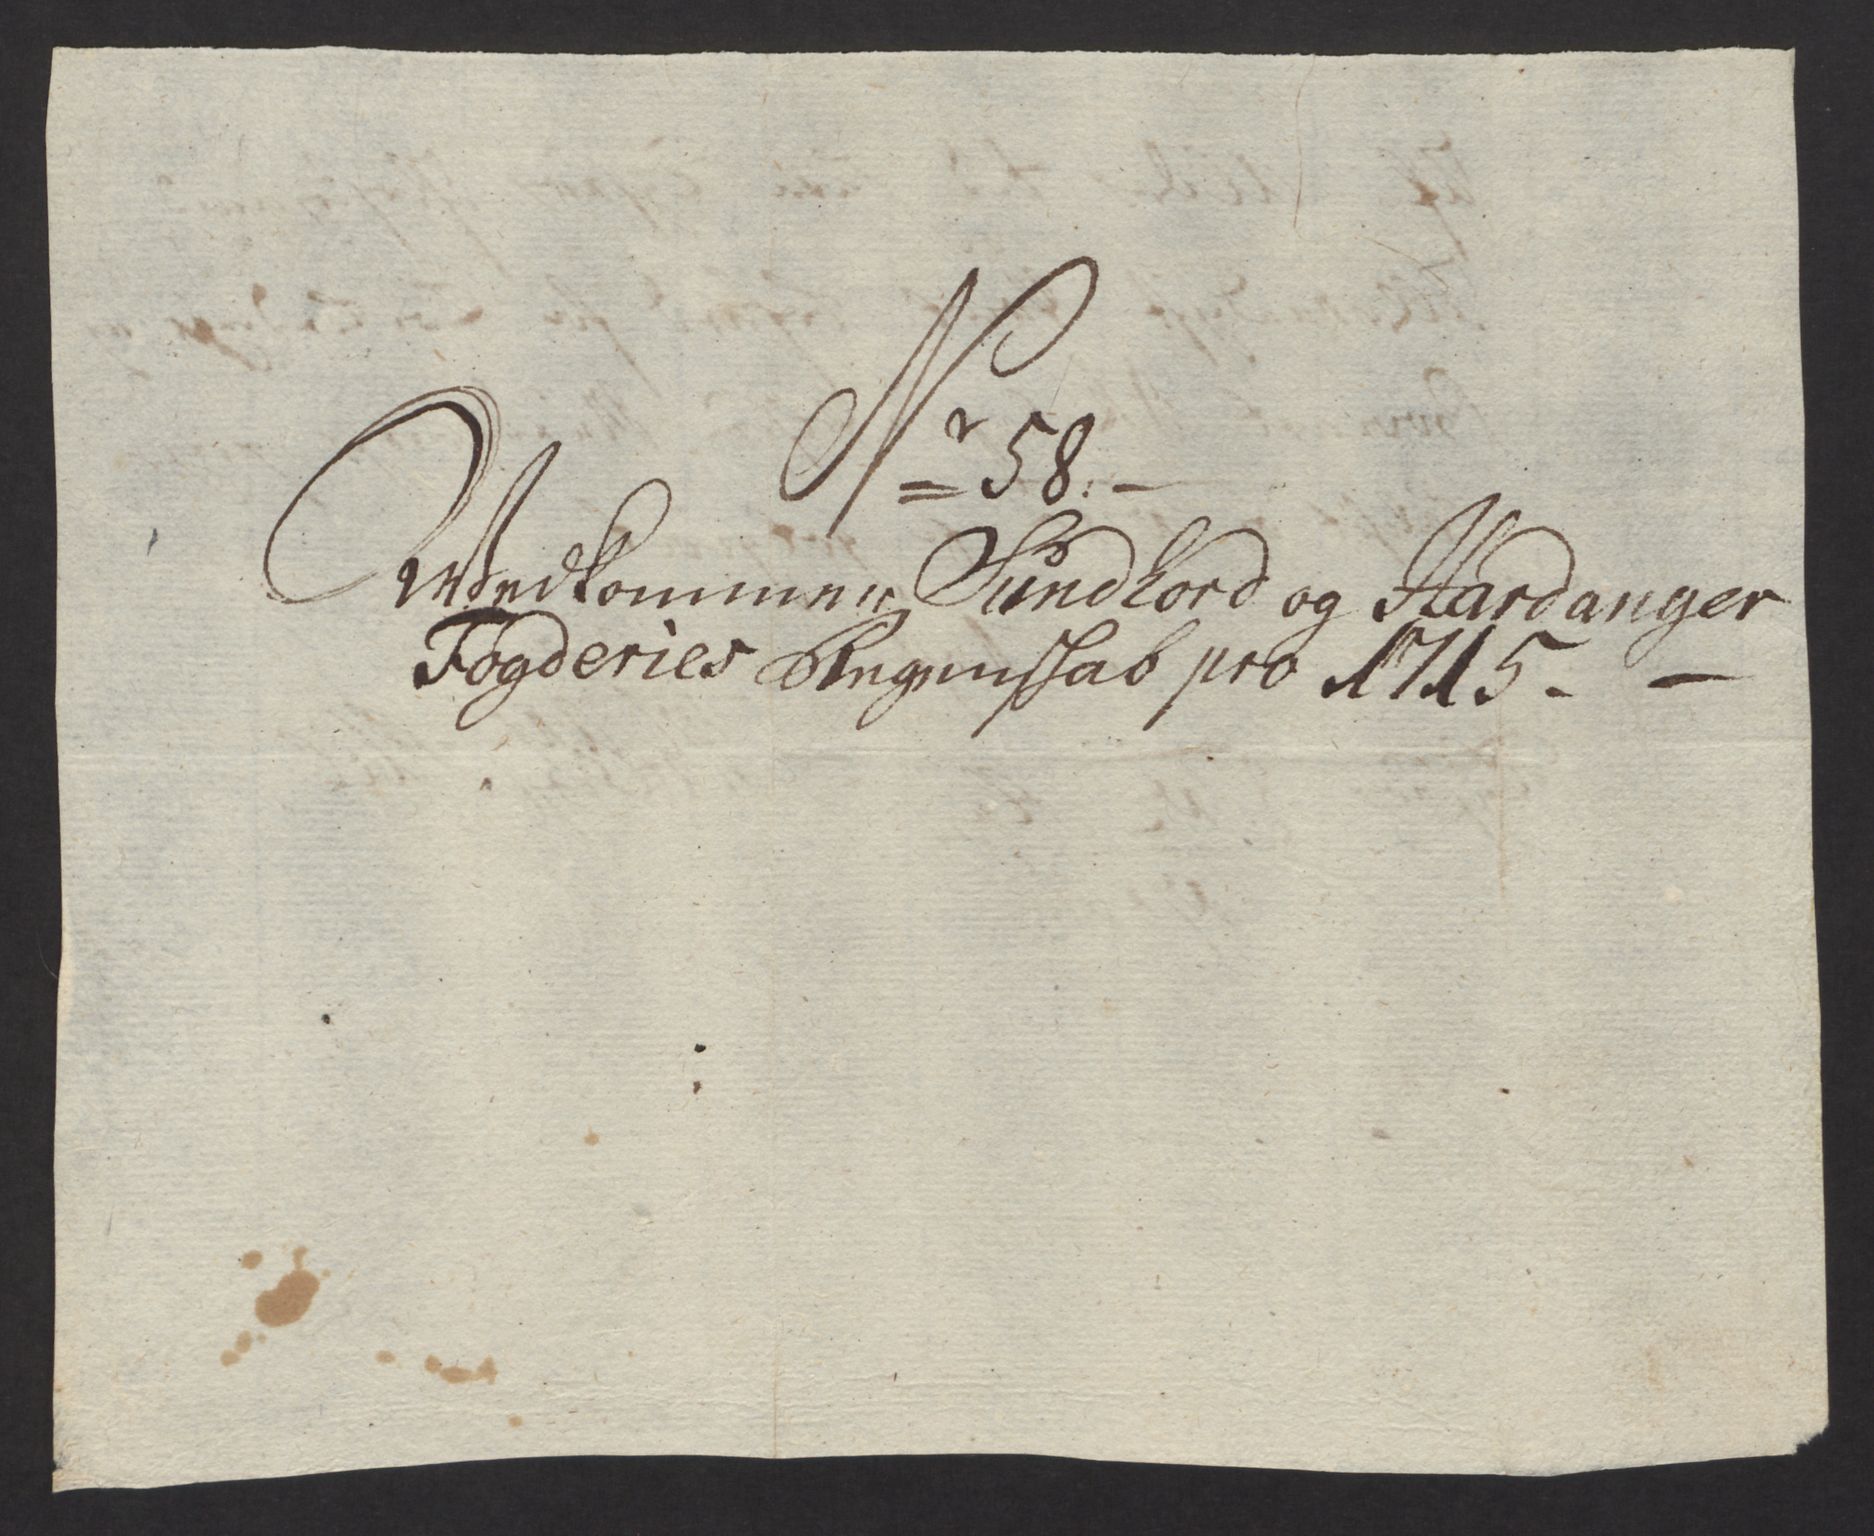 Nr 58.
Vedkommer Sundhord og Hardanger
Fogderies Regenskab pro 1715.